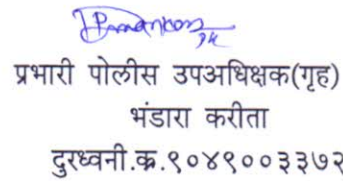 प्रभारी पोलीस उपअधिक्षक(गृह)
भंडारा करीता
दुरध्वनी.क्र.९०४९००३३७२